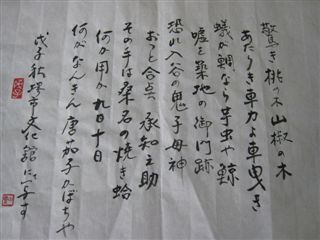 驚き桃の木山椒の木
あたりき車力よ車曳き
蟻が鯛なら芋虫や鯨
嘘を築地の御門跡
恐れ入谷の鬼子母神
おっと合点承知之助
その手は桑名の焼き蛤
何か用か九日十日
何がなんきん唐茄子かぼちゃ
戊子秋 堺市文化館にて 写す